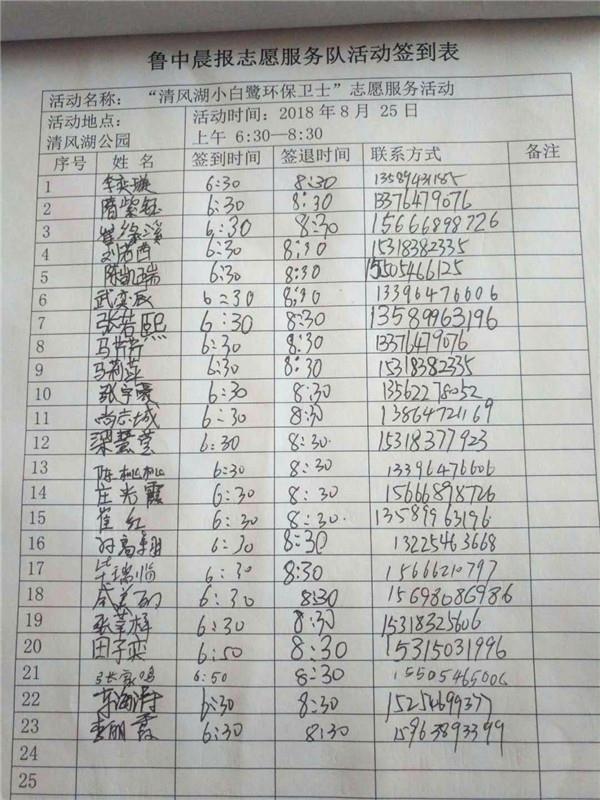 鲁中晨报志愿服务队活动签到表
活动名称： “清风湖小白鹭环保卫士”志愿服务活动
活动地点： 活动时间：2018 年 8 月 25 日
清风湖公园 上午 6:30—8:30
序号 姓 名 签到时间 签退时间 联系方式 备注
1 李奕璇 6:30 8:30
2 隋紫钰 6:30 8:30 13376479076
3 崔缘溪 6:30 8:30 15666898726
4 刘若西 6:30 8:30 15318382335
5 陈凯瑞 6:30 8:30 15505466125
6 武奕辰 6:30 8:30 13396476606
7 张若熙 6:30 8:30 13589963196
8 马芹芹 6:30 8:30 13376479076
9 马莉萍 6:30 8:30 15318382335
10 张宇豪 6:30 8:30 13562278052
11 尚志城 6:30 8:30 13864721169
12 梁慧莹 6:30 8:30 15318377923
13 陈桃桃 6:30 8:30 13396476606
14 庄光霞 6:30 8:30 15666898726
15 崔红 6:30 8:30 13589963196
16 6:30 8:30 13225463668
17 毕瑞临 6:30 8:30 15666210797
18 6:30 8:30 15698086986
19 6:30 8:30 15318325606
20 田子奕 6:50 8:30 15315031996
21 张家鸣 6:50 8:30 15505465006
22 6:30 8:30 15254699377
23 6:30 8:30 15963893399
24
25